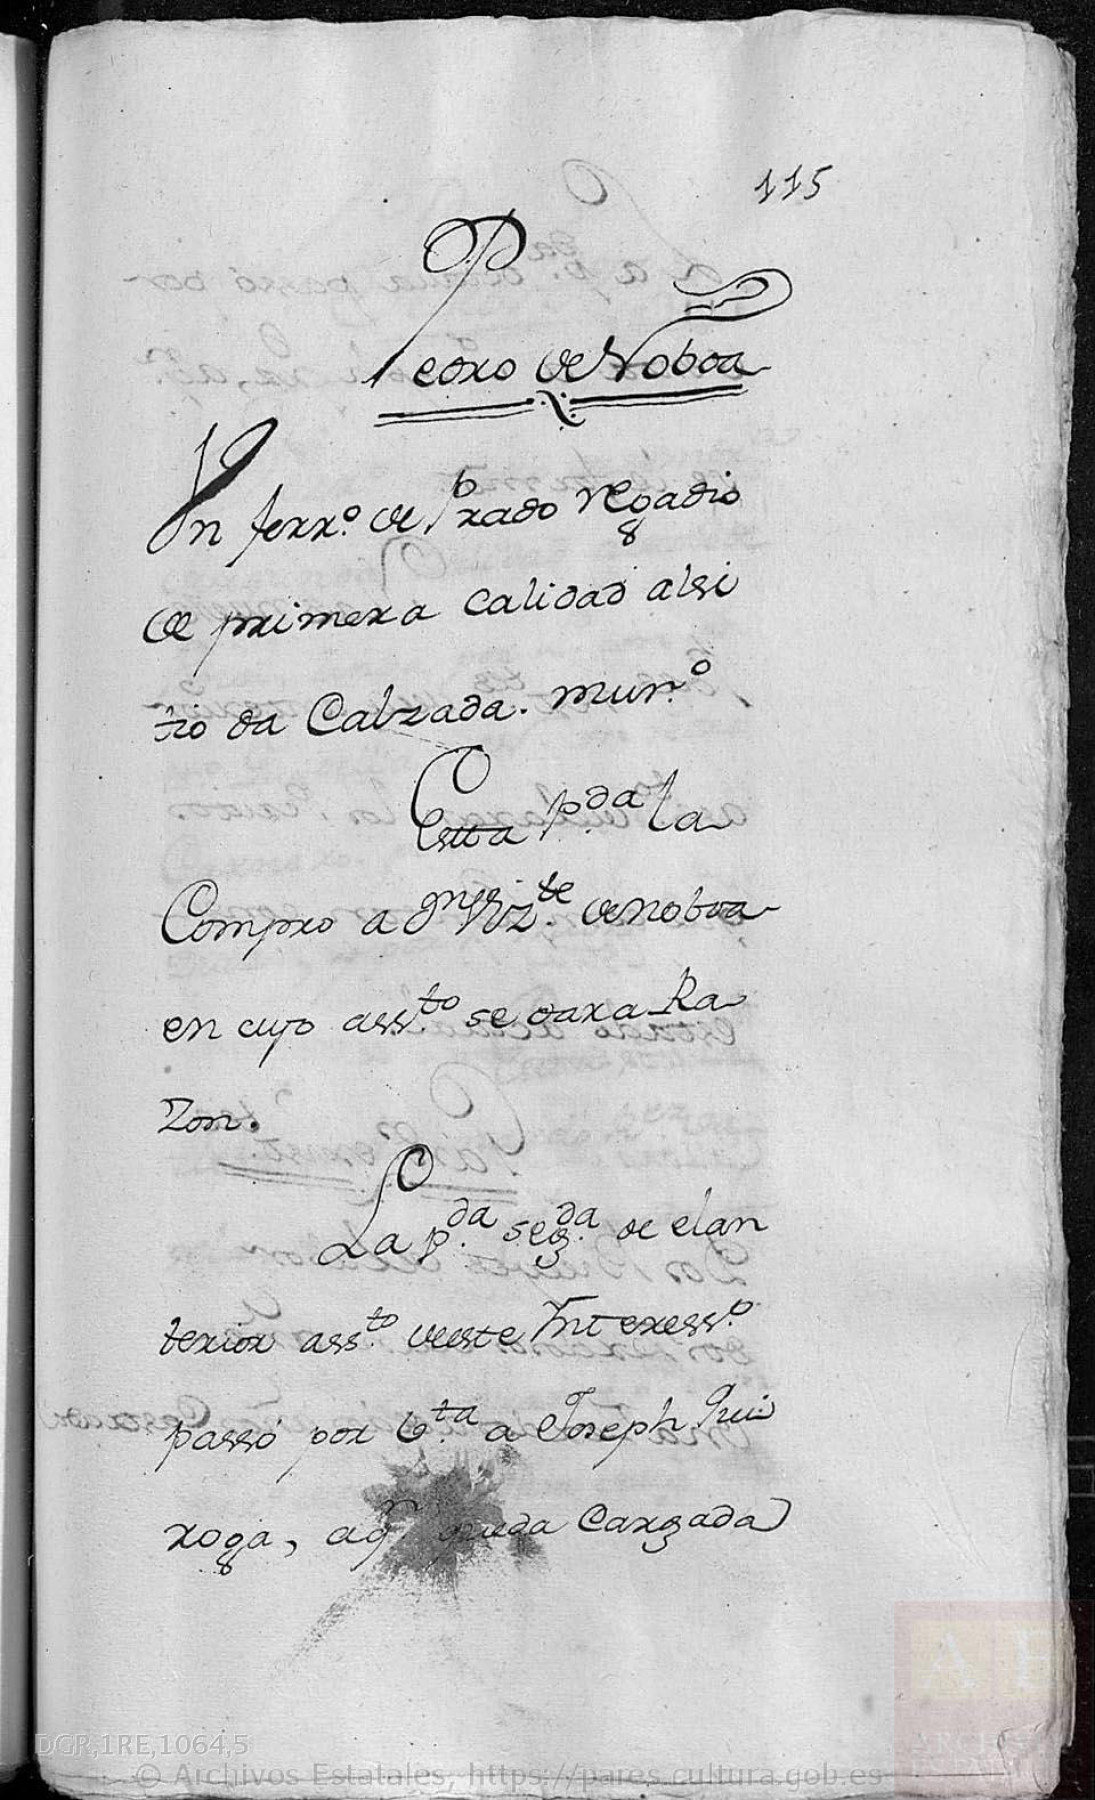 115
Pedro de Noboa
Un ferr.º de Prado regadio
de primera calidad alsi
tio da Calzada. mur.º
Esta P.da la
Compro a Dn Viz.te de noboa
en cuyo ass.to se dara Ra
zon.
La p.da seg.da de el an
terior ass.to de este Interess.º
passó por v.ta a Joseph Qui
roga, a qn queda Cargada
DGR,1RE,1064,5
© Archivos Estatales, https://pares.cultura.gob.es